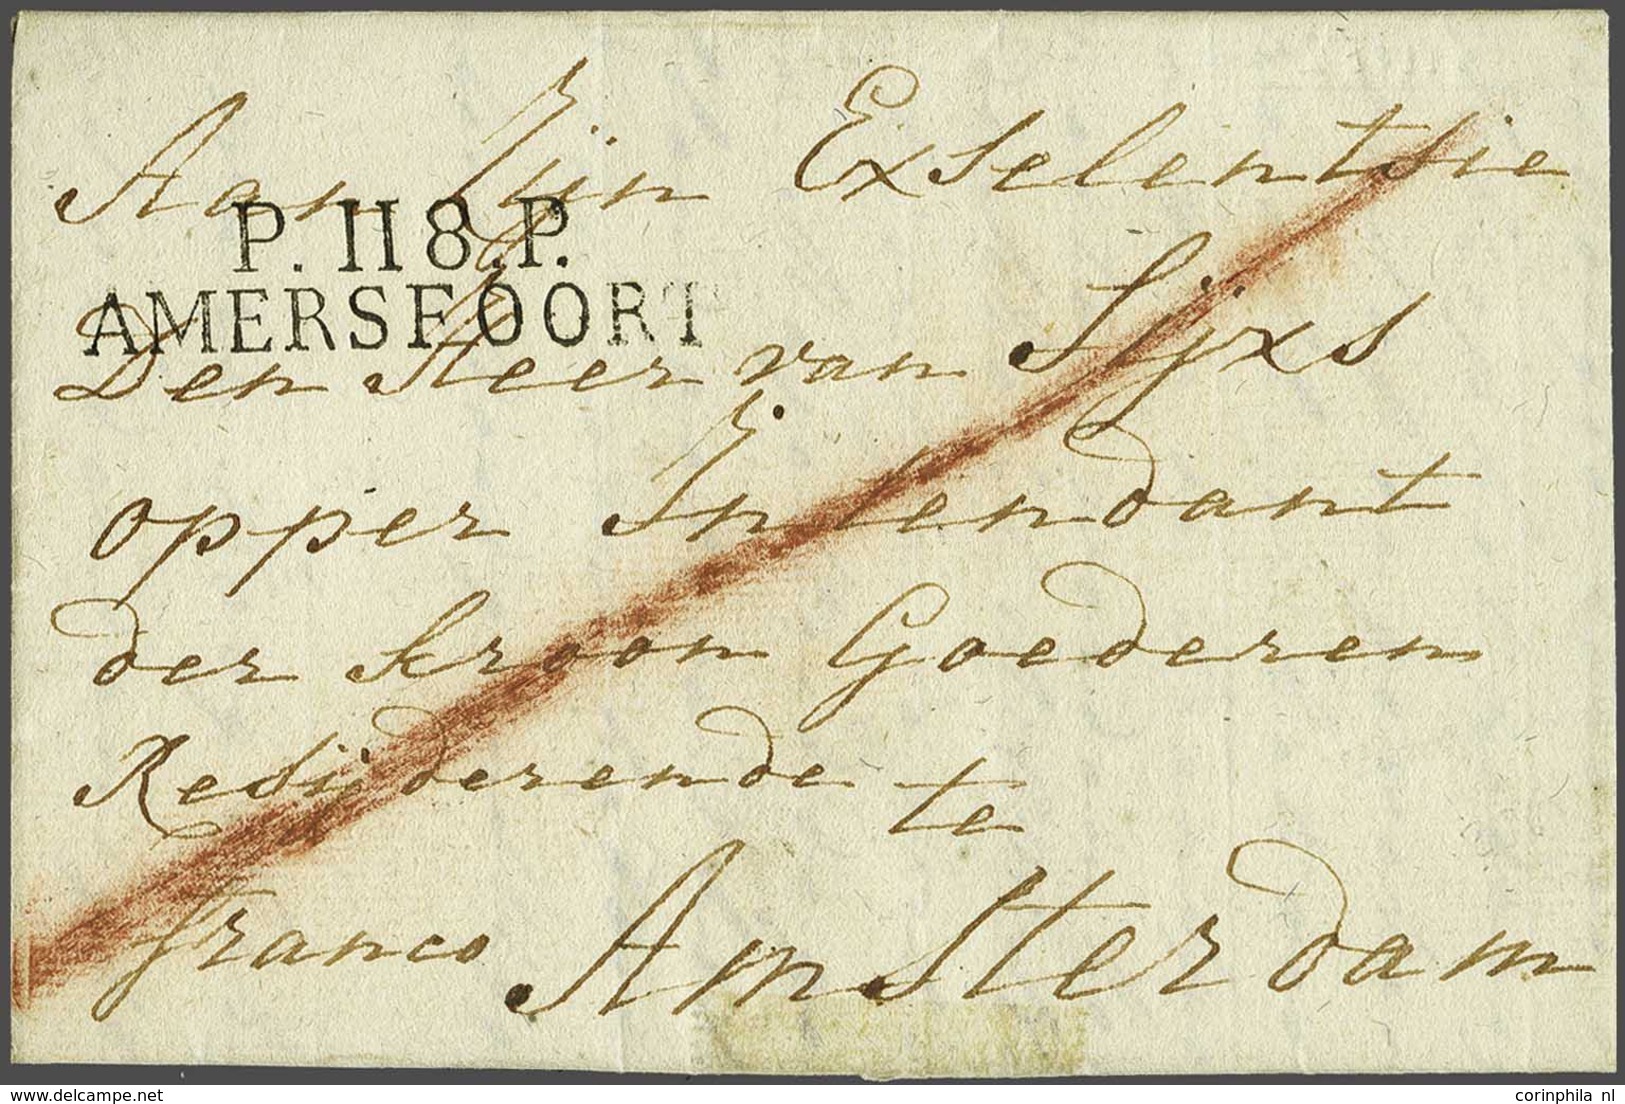 Aan Zijn Exselentsie
P. 118. P.
AMERSFOORT
Den Heer van Sijxs
opper Intendant
der Kroon Goederen
Resijderende te
Franco Amsterdam
delcampe.net
corinphila nl